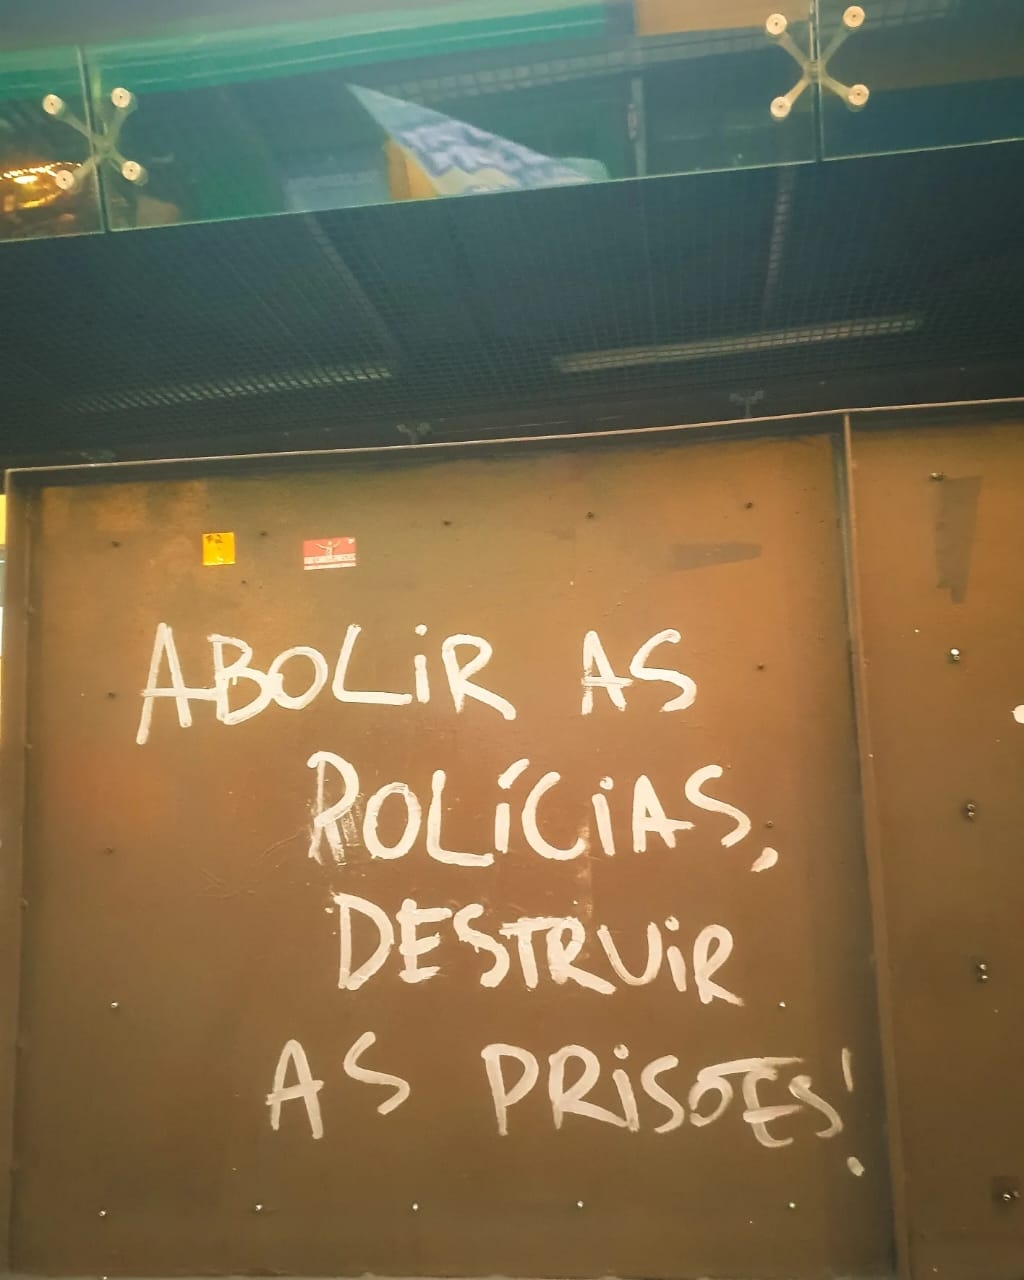 ABOLiR AS
POLÍCiAS,
DESTRUiR
AS PRiSÕES!